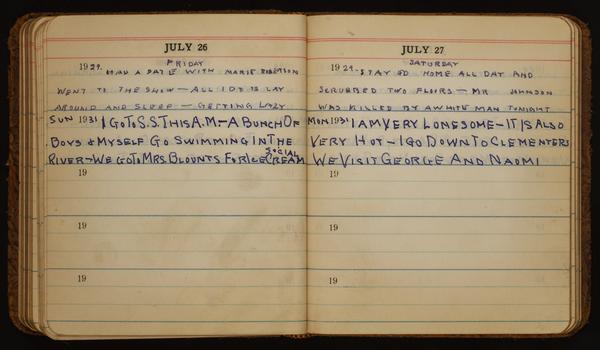 JULY 26
1929. FRIDAY
HAD A DATE WITH MARIE ROBERSON
WENT TO THE SHOW - ALL I DO IS LAY
AROUND AND SLEEP - GETTING LAZY
SUN 1931 I GO TO S.S. THIS A.M. - A BUNCH OF
BOYS & MYSELF GO SWIMMING IN THE
RIVER - WE GO TO MRS. BLOUNTS FOR ICE CREAM SOCIAL
19
19
19
JULY 27
SATURDAY
1929 - STAYED HOME ALL DAY AND
SCRUBBED TWO FLOORS - MR JOHNSON
WAS KILLED BY A WHITE MAN TONIGHT
MON. 1931 I AM VERY LONESOME - IT IS ALSO
VERY HOT - I GO DOWN TO CLEMENTERS
WE VISIT GEORGE AND NAOMI
19
19
19